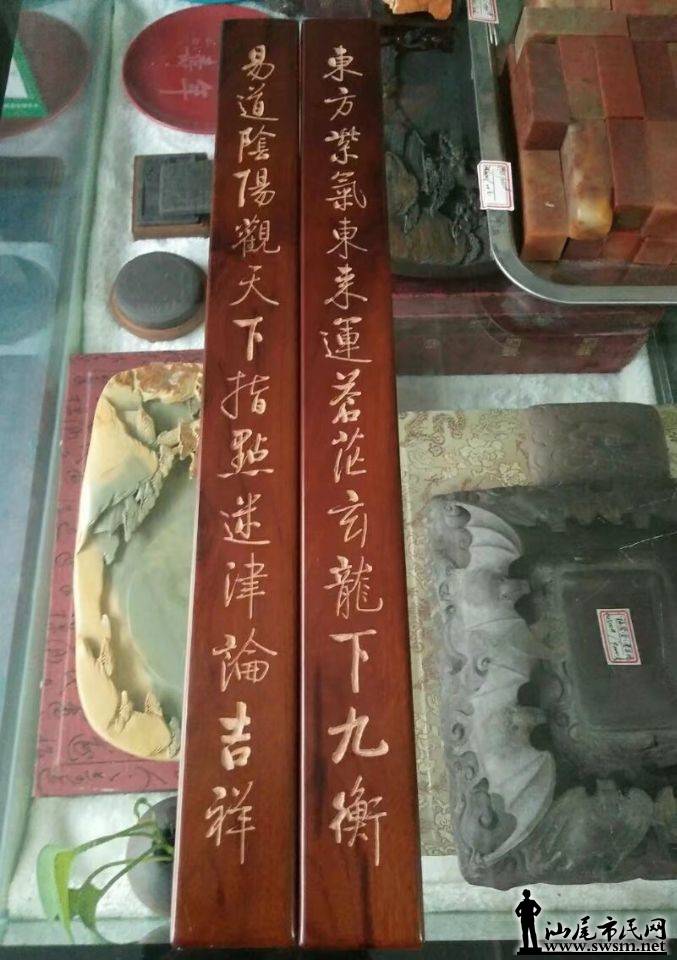 東方紫氣東来運蒼茫玄龍下九衡
易道陰陽觀天下指點迷津論吉祥
汕尾市民网
www.swsm.net